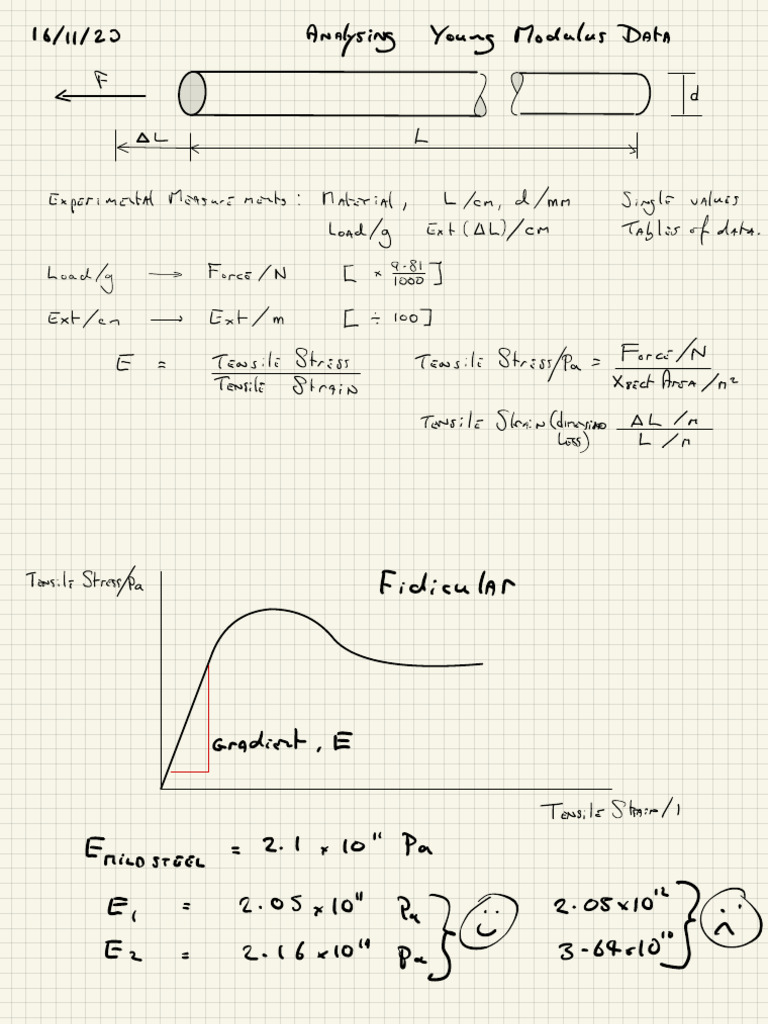 16/11/20 Analysing Young Modulus Data
F
d
ΔL L
Experimental Measurements: Material, L/cm, d/mm Single values
Load/g Ext(ΔL)/cm Tables of data.
Load/g → Force/N [ × 9.81/1000 ]
Ext/cm → Ext/m [ ÷ 100 ]
E = Tensile Stress / Tensile Strain Tensile Stress/Pa = Force/N / Xsect Area/m²
Tensile Strain (dimension less) ΔL/m / L/m
Tensile Stress/Pa
Fidicular
Gradient, E
Tensile Strain/1
E MILD STEEL = 2.1 × 10¹¹ Pa
E₁ = 2.05 × 10¹¹ Pa 2.05×10¹²
E₂ = 2.16 × 10¹¹ Pa 3.64×10¹⁰